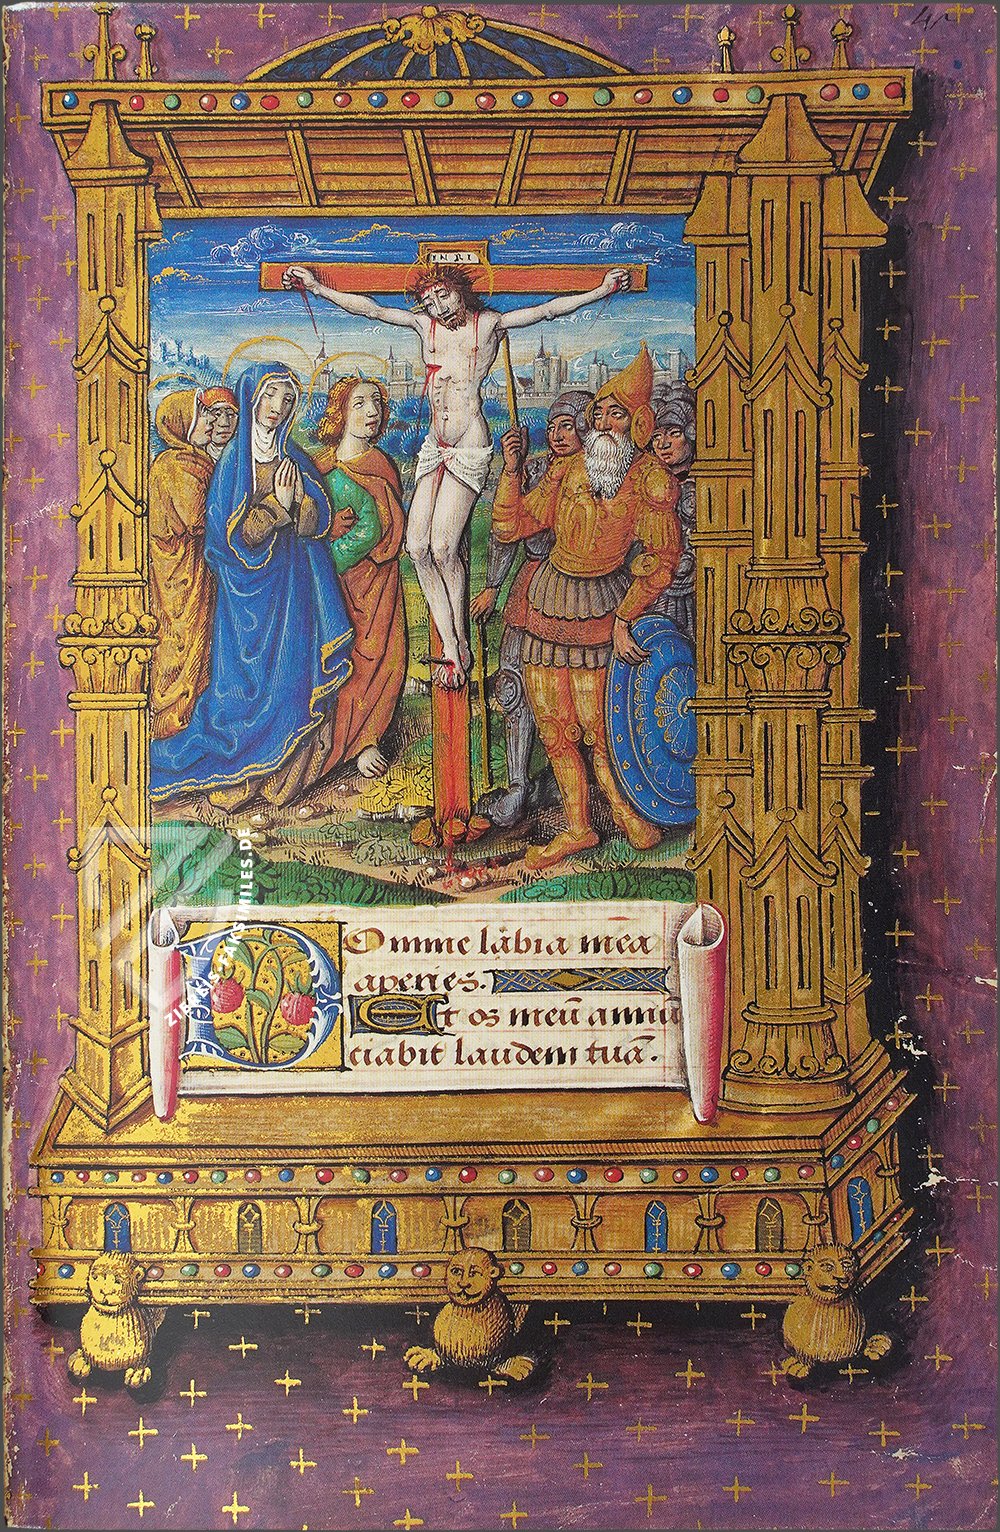 INRI
Domine labia mea
aperies.
Et os meū annū
ciabit laudem tuā.
ZIEREIS-FAKSIMILES.DE